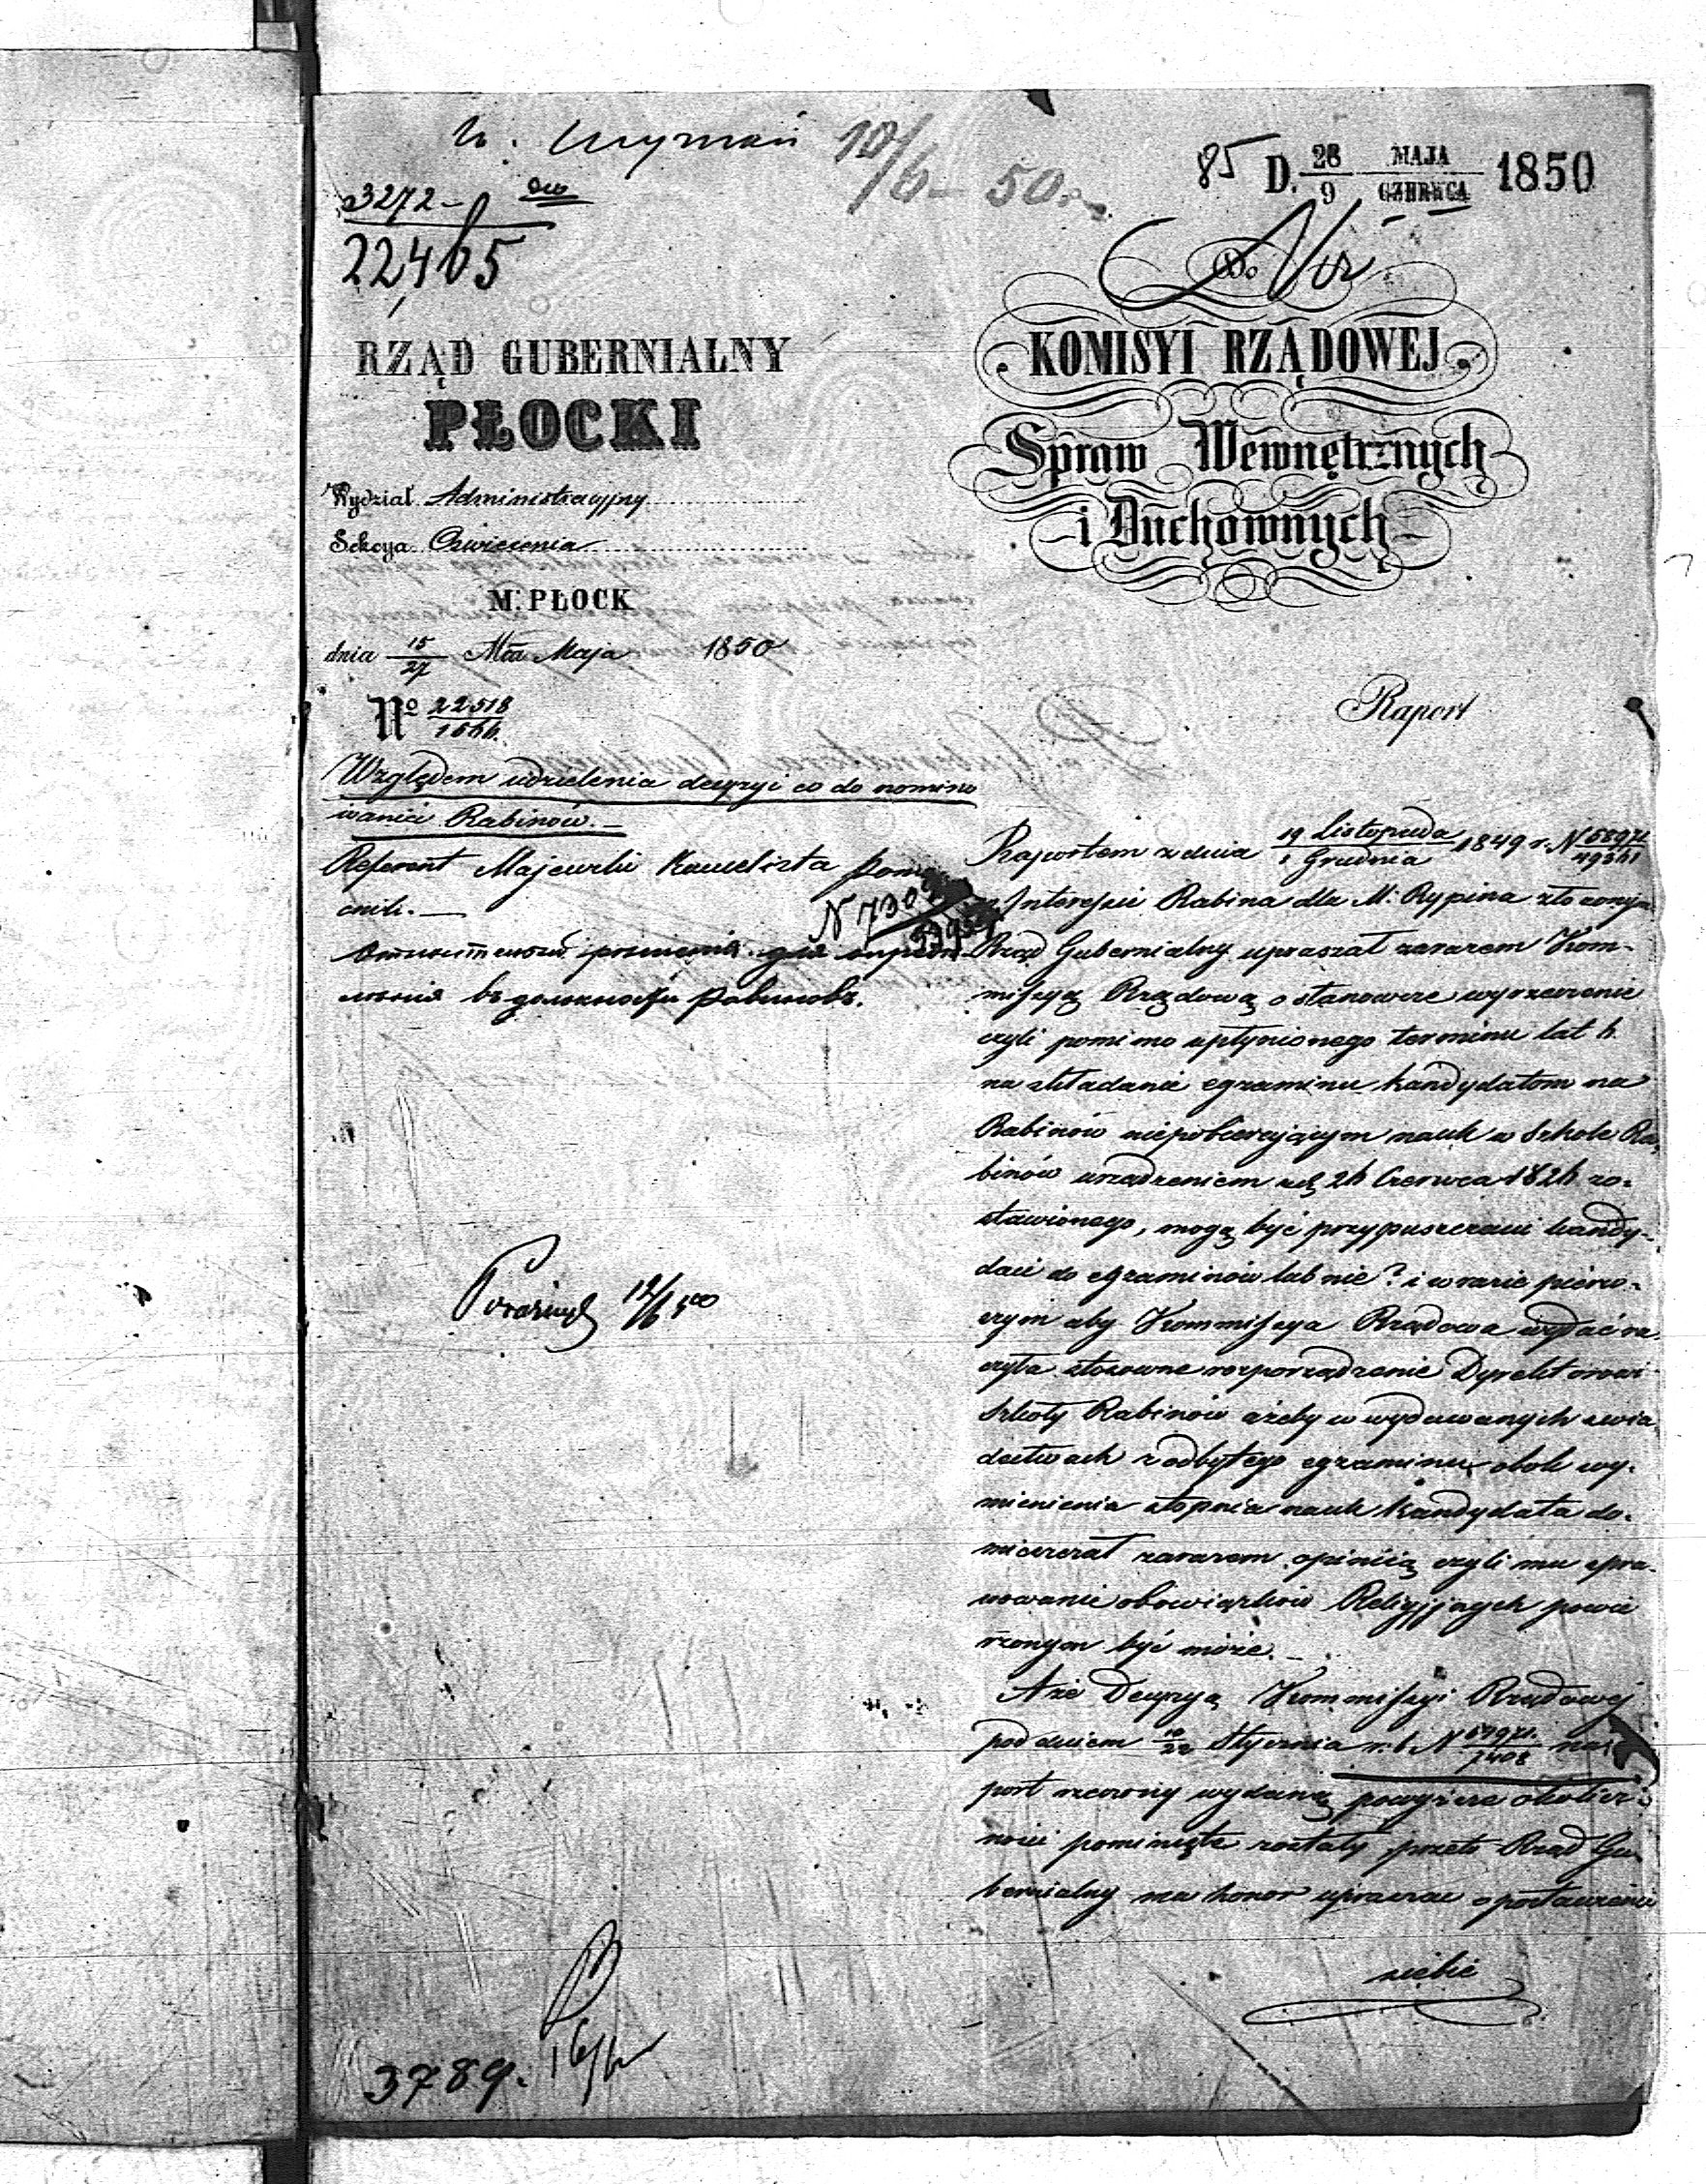 85 D. 28/9 MAJA/CZERWCA 1850
10/6 - 50.
3272
22465
Do
KOMISYI RZĄDOWEJ
Spraw Wewnętrznych
i Duchownych
RZĄD GUBERNIALNY
PŁOCKI
Wydział Administracyjny
Sekcya Oświecenia
M. PŁOCK
dnia 15/27 Mca Maja 1850
No 22518
Względem udzielenia decyzyi co do nomino
wania Rabinów. -
Referent Majewski Kancelista
N 730
въ должности равиновъ.
12/6
3789. 16/6
Raport
Raportem z dnia 19 Listopada/1 Grudnia 1849 r. N
Interesie Rabina dla M. Rypina złożonym
Rząd Gubernialny upraszał zarazem Kom-
missyą Rządową o stanowcze wyrzeczenie
czyli pomimo upłynionego terminu lat 6.
na składanie egzaminu kandydatom na
Rabinów niepobierającym nauk w Szkole Ra-
binów urządzeniem z d. 26 Czerwca 1826 zo-
stawionego, mogą być przypuszczani kandy-
daci do egzaminów lub nie? i w razie pierw-
szym aby Kommissya Rządowa wydać ra-
czyła stosowne rozporządzenie Dyrektorowi
Szkoły Rabinów ażeby w wydawanych świa
dectwach z odbytego egzaminu obok wy-
mienienia stopnia nauk Kandydata do-
mieszczał zarazem opinią czyli mu spra-
wowanie obowiązków Religijnych powie
rzonym być może. -
A że Decyzyą Kommissyi Rządowej
pod dniem 10/22 Stycznia r. b. N na ra
port rzeczony wydaną powyższe okolicz-
ności pominięte zostały, przeto Rząd Gu
bernialny ma honor upraszać o
siebie